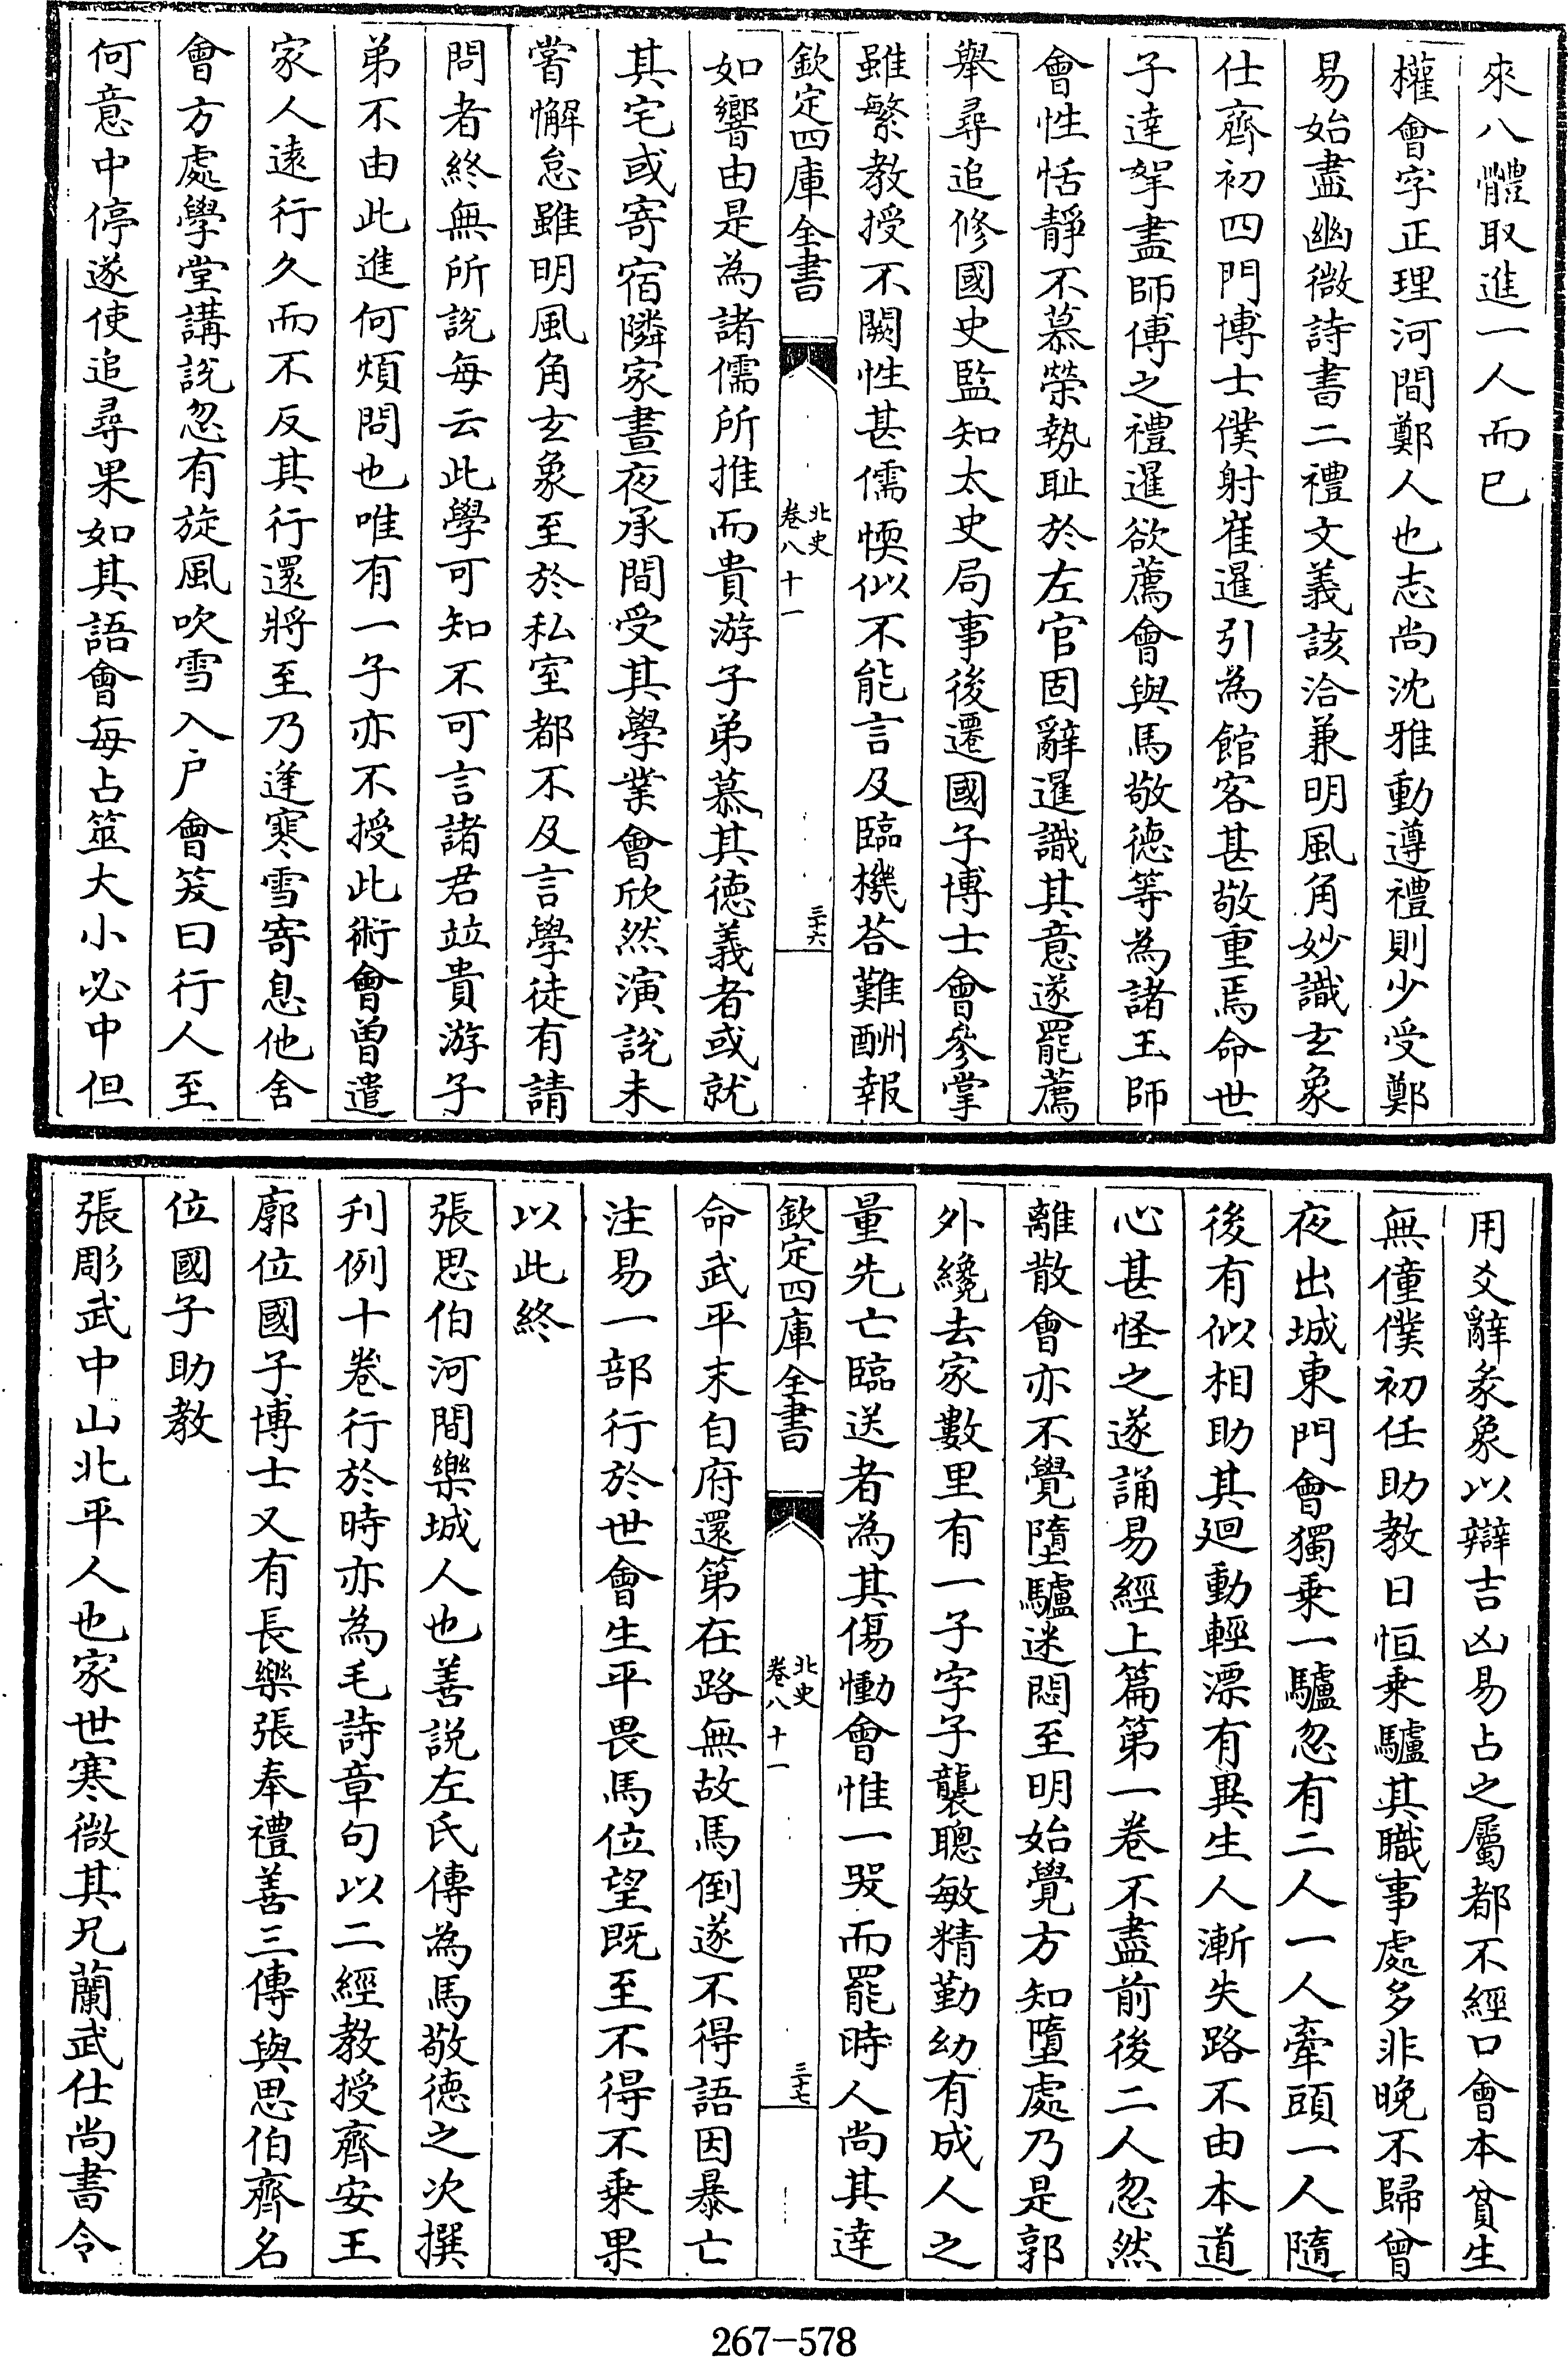 來八體取進一人而已
權會字正理河間鄭人也志尚沈雅動遵禮則少受鄭
易始盡幽微詩書二禮文義該洽兼明風角妙識玄象
仕齊初四門博士僕射崔暹引為館客甚敬重焉命世
子達拏盡師傅之禮暹欲薦會與馬敬德等為諸王師
會性恬靜不慕榮勢恥於左官固辭暹識其意遂罷薦
舉尋追修國史監知太史局事後遷國子博士會參掌
雖繁教授不闕性甚儒愞似不能言及臨機荅難酬報
欽定四庫全書
北史
卷八十一
三十六
如響由是為諸儒所推而貴游子弟慕其德義者或就
其宅或寄宿隣家晝夜承間受其學業會欣然演說未
嘗懈怠雖明風角玄象至於私室都不及言學徒有請
問者終無所說每云此學可知不可言諸君竝貴游子
弟不由此進何煩問也唯有一子亦不授此術會曾遣
家人遠行久而不反其行還將至乃逢寒雪寄息他舍
會方處學堂講說忽有旋風吹雪入户會笑曰行人至
何意中停遂使追尋果如其語會每占筮大小必中但
用爻辭彖象以辯吉凶易占之屬都不經口會本貧生
無僮僕初任助教日恒乗驢其職事處多非晚不歸曾
夜出城東門會獨乗一驢忽有二人一人牽頭一人隨
後有似相助其迴動輕漂有異生人漸失路不由本道
心甚怪之遂誦易經上篇第一卷不盡前後二人忽然
離散會亦不覺墮驢迷悶至明始覺方知墮處乃是郭
外纔去家數里有一子字子襲聰敏精勤幼有成人之
量先亡臨送者為其傷慟會惟一哭而罷時人尚其達
欽定四庫全書
北史
卷八十一
三十七
命武平末自府還第在路無故馬倒遂不得語因暴亡
注易一部行於世會生平畏馬位望既至不得不乗果
以此終
張思伯河間樂城人也善説左氏傳為馬敬德之次撰
刋例十卷行於時亦為毛詩章句以二經教授齊安王
廓位國子博士又有長樂張奉禮善三傳與思伯齊名
位國子助教
張彫武中山北平人也家世寒微其兄蘭武仕尚書令
267-578